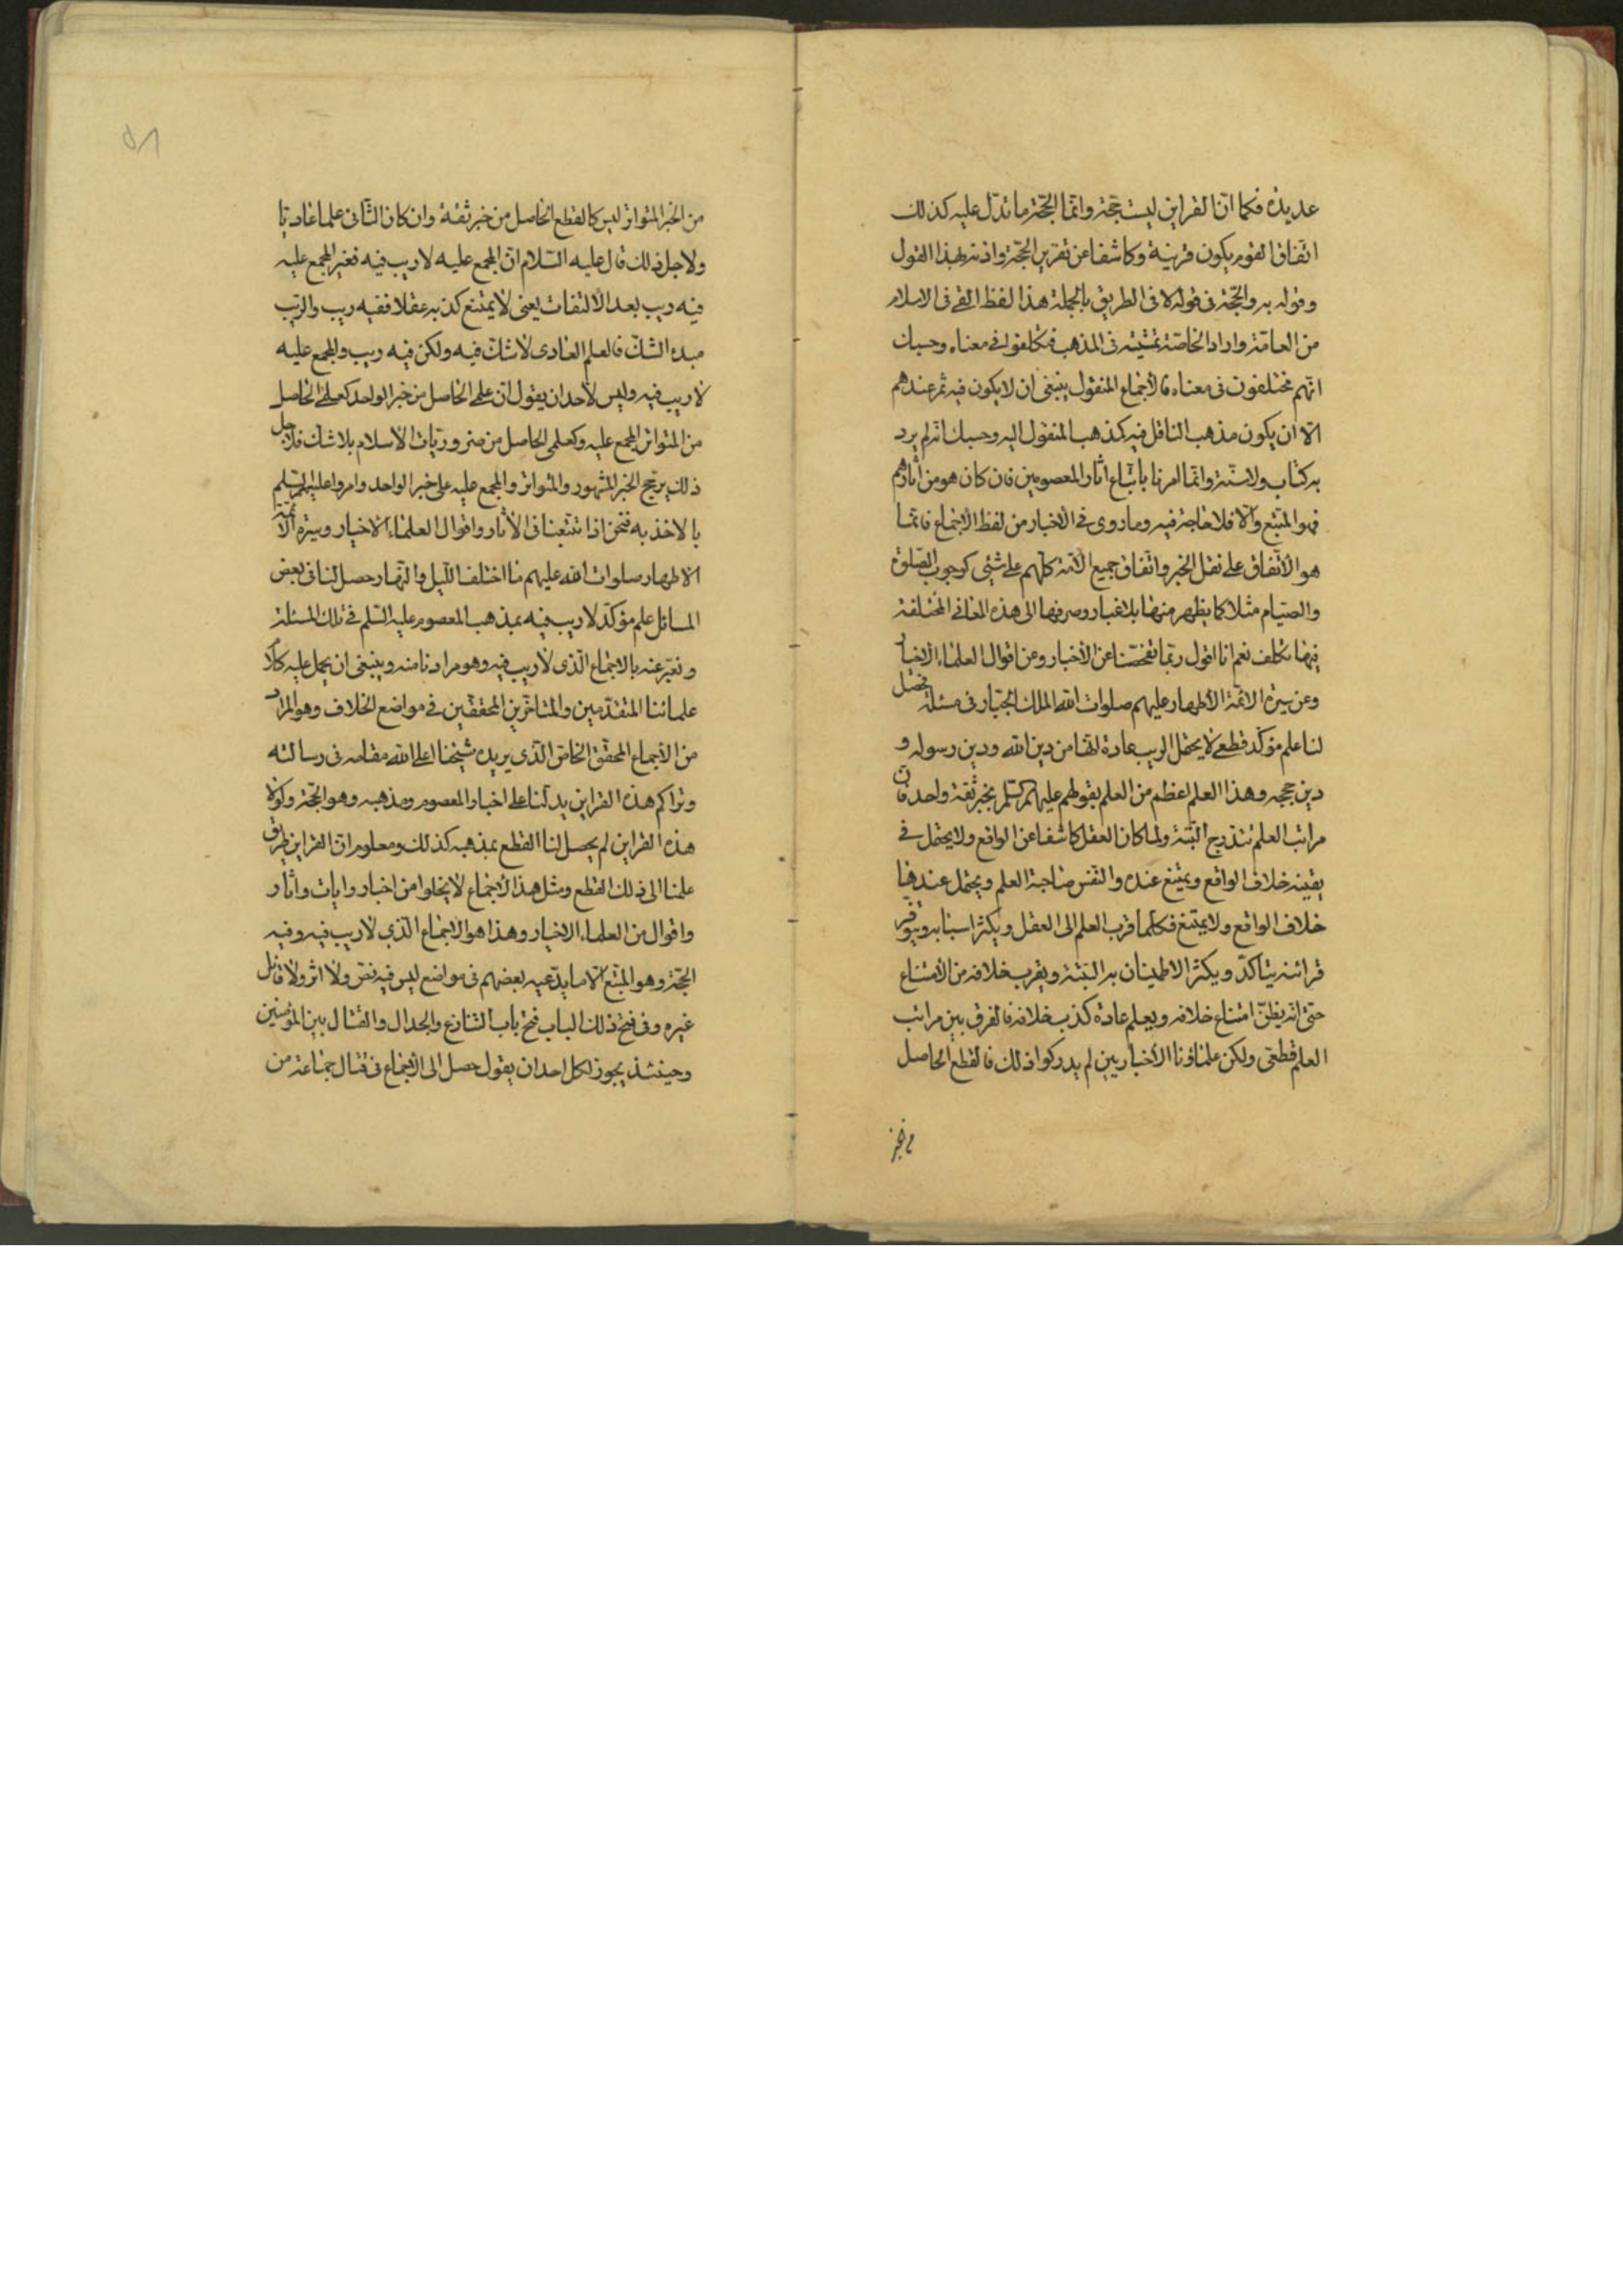 عديدة فكما انّ القراين ليست حجّة وانّما الحجّة ما تدلّ عليه كذلك
اتفاق القوم يكون قرينة وكاشفا عن تقرير الحجّة واذنه بهذا القول
وقوله به والحجّة فى قوله لا فى الطريق بالجملة هذا لفظ القى فى الاسلام
من العامّة واراد الخاصّة تمشيته فى المذهب فتكلفوا فى معناه وحسبك
انّهم مختلفون فى معناه فالاجماع المنقول ينبغى ان لا يكون فيه ثمر عندهم
الّا ان يكون مذهب الناقل فيه كذهب المنقول اليه وحسبك انّه لم يرد
به كتاب ولا سنّة وانّما امرنا باتّباع اثار المعصومين فان كان هو من اثارهم
فهو المتّبع والّا فلا حاجة فيه وما روى فى الاخبار من لفظ الاجماع فانّما
هو الاتّفاق على نقل الخبر واتّفاق جميع الامّة كلّهم على شئى كوجوب الصّلوة
والصّيام مثلا كما يظهر منها بلا غبار وصرفها الى هذه المعانى المختلفة
فيها تكلف نعم انا اقول ربّما تفحّصنا عن الأخبار وعن اقوال العلماء الاخيار
وعن سيرة الائمّة الأطهار عليهم صلوات الله الملك الجبّار فى مسئلة فحصل
لنا علم مؤكّد قطعى لا يحتمل الريب عادة انّها من دين الله ودين رسوله و
دين حججه وهذا العلم اعظم من العلم بقولهم عليهم السّلم بخبر ثقة واحد فان
مراتب العلم تتدرج البّتة ولما كان العقل كاشفا عن الواقع ولا يحتمل فى
يقينه خلاف الواقع ويمتنع عنده والنفس صاحبة العلم ويحتمل عندها
خلاف الواقع ولا يمتنع فكلّما قرب العلم الى العقل ويكثر اسبابه ويتوفر
قرائنه يتأكّد ويكثر الاطمينان به البتّة ويقرب خلافه من الأمتناع
حتى انّه يظنّ امتناع خلافه ويعلم عادة كذب خلافه فالفرق بين مراتب
العلم قطعى ولكن علماؤنا الأخباريين لم يدركوا ذلك فالقطع الحاصل
من الخبر
من الخبر المتواتر ليس كالقطع الحاصل من خبر ثقة وان كان الثّانى علما عاديّا
ولاجل ذلك قال عليه السّلام انّ المجمع عليه لا ريب فيه فغير المجمع عليه
فيه ريب بعد الألتفات يعنى لا يمتنع كذبه عقلا ففيه ريب والرّيب
مبدء الشكّ فالعلم العادى لا شكّ فيه ولكن فيه ريب والمجمع عليه
لا ريب فيه وليس لأحد ان يقول انّ علمى الحاصل من خبر الواحد كعلمى الحاصل
من المتواتر المجمع عليه وكعلمى الحاصل من ضروريّات الأسلام بلا شكّ فلاجل
ذلك يرجّح الخبر المشهور والمتواتر والمجمع عليه على خبر الواحد وامروا عليهم السّلم
بالاخذ به فنحن اذا تتبّعنا فى الأثار واقوال العلماء الاخيار وسيرة الائمّة
الاطهار صلوات الله عليهم ما اختلف اللّيل والنّهار حصل لنا فى بعض
المسائل علم مؤكّد لا ريب فيه بمذهب المعصوم عليه السّلم فى تلك المسئلة
ونعبّر عنه بالاجماع الّذى لا ريب فيه وهو مرادنا منه وينبغى ان يحمل عليه كلام
علمائنا المتقدّمين والمتأخّرين المحققّين فى مواضع الخلاف وهو المراد
من الأجماع المحقّق الخاصّ الّذى يريده شيخنا اعلى الله مقامه فى رسالته
وتراكم هذه القراين يدلّنا على اخبار المعصوم ومذهبه وهو الحجّة ولولا
هذه القراين لم يحصل لنا القطع بمذهبه كذلك ومعلوم انّ القراين طريق
علمنا الى ذلك القطع ومثل هذا الأجماع لا يخلوا من اخبار وايات واثار
واقوال من العلماء الاخيار وهذا هو الاجماع الّذى لا ريب فيه وفيه
الحجّة وهو المتّبع لا ما يدّعيه بعضهم فى مواضع ليس فيه نصّ ولا اثر ولا قائل
غيره وفى فتح ذلك الباب فتح باب التنازع والجدال والقتال بين المؤمنين
وحينئذ يجوز لكلّ احد ان يقول حصل الى الأجماع فى قتال جماعة من